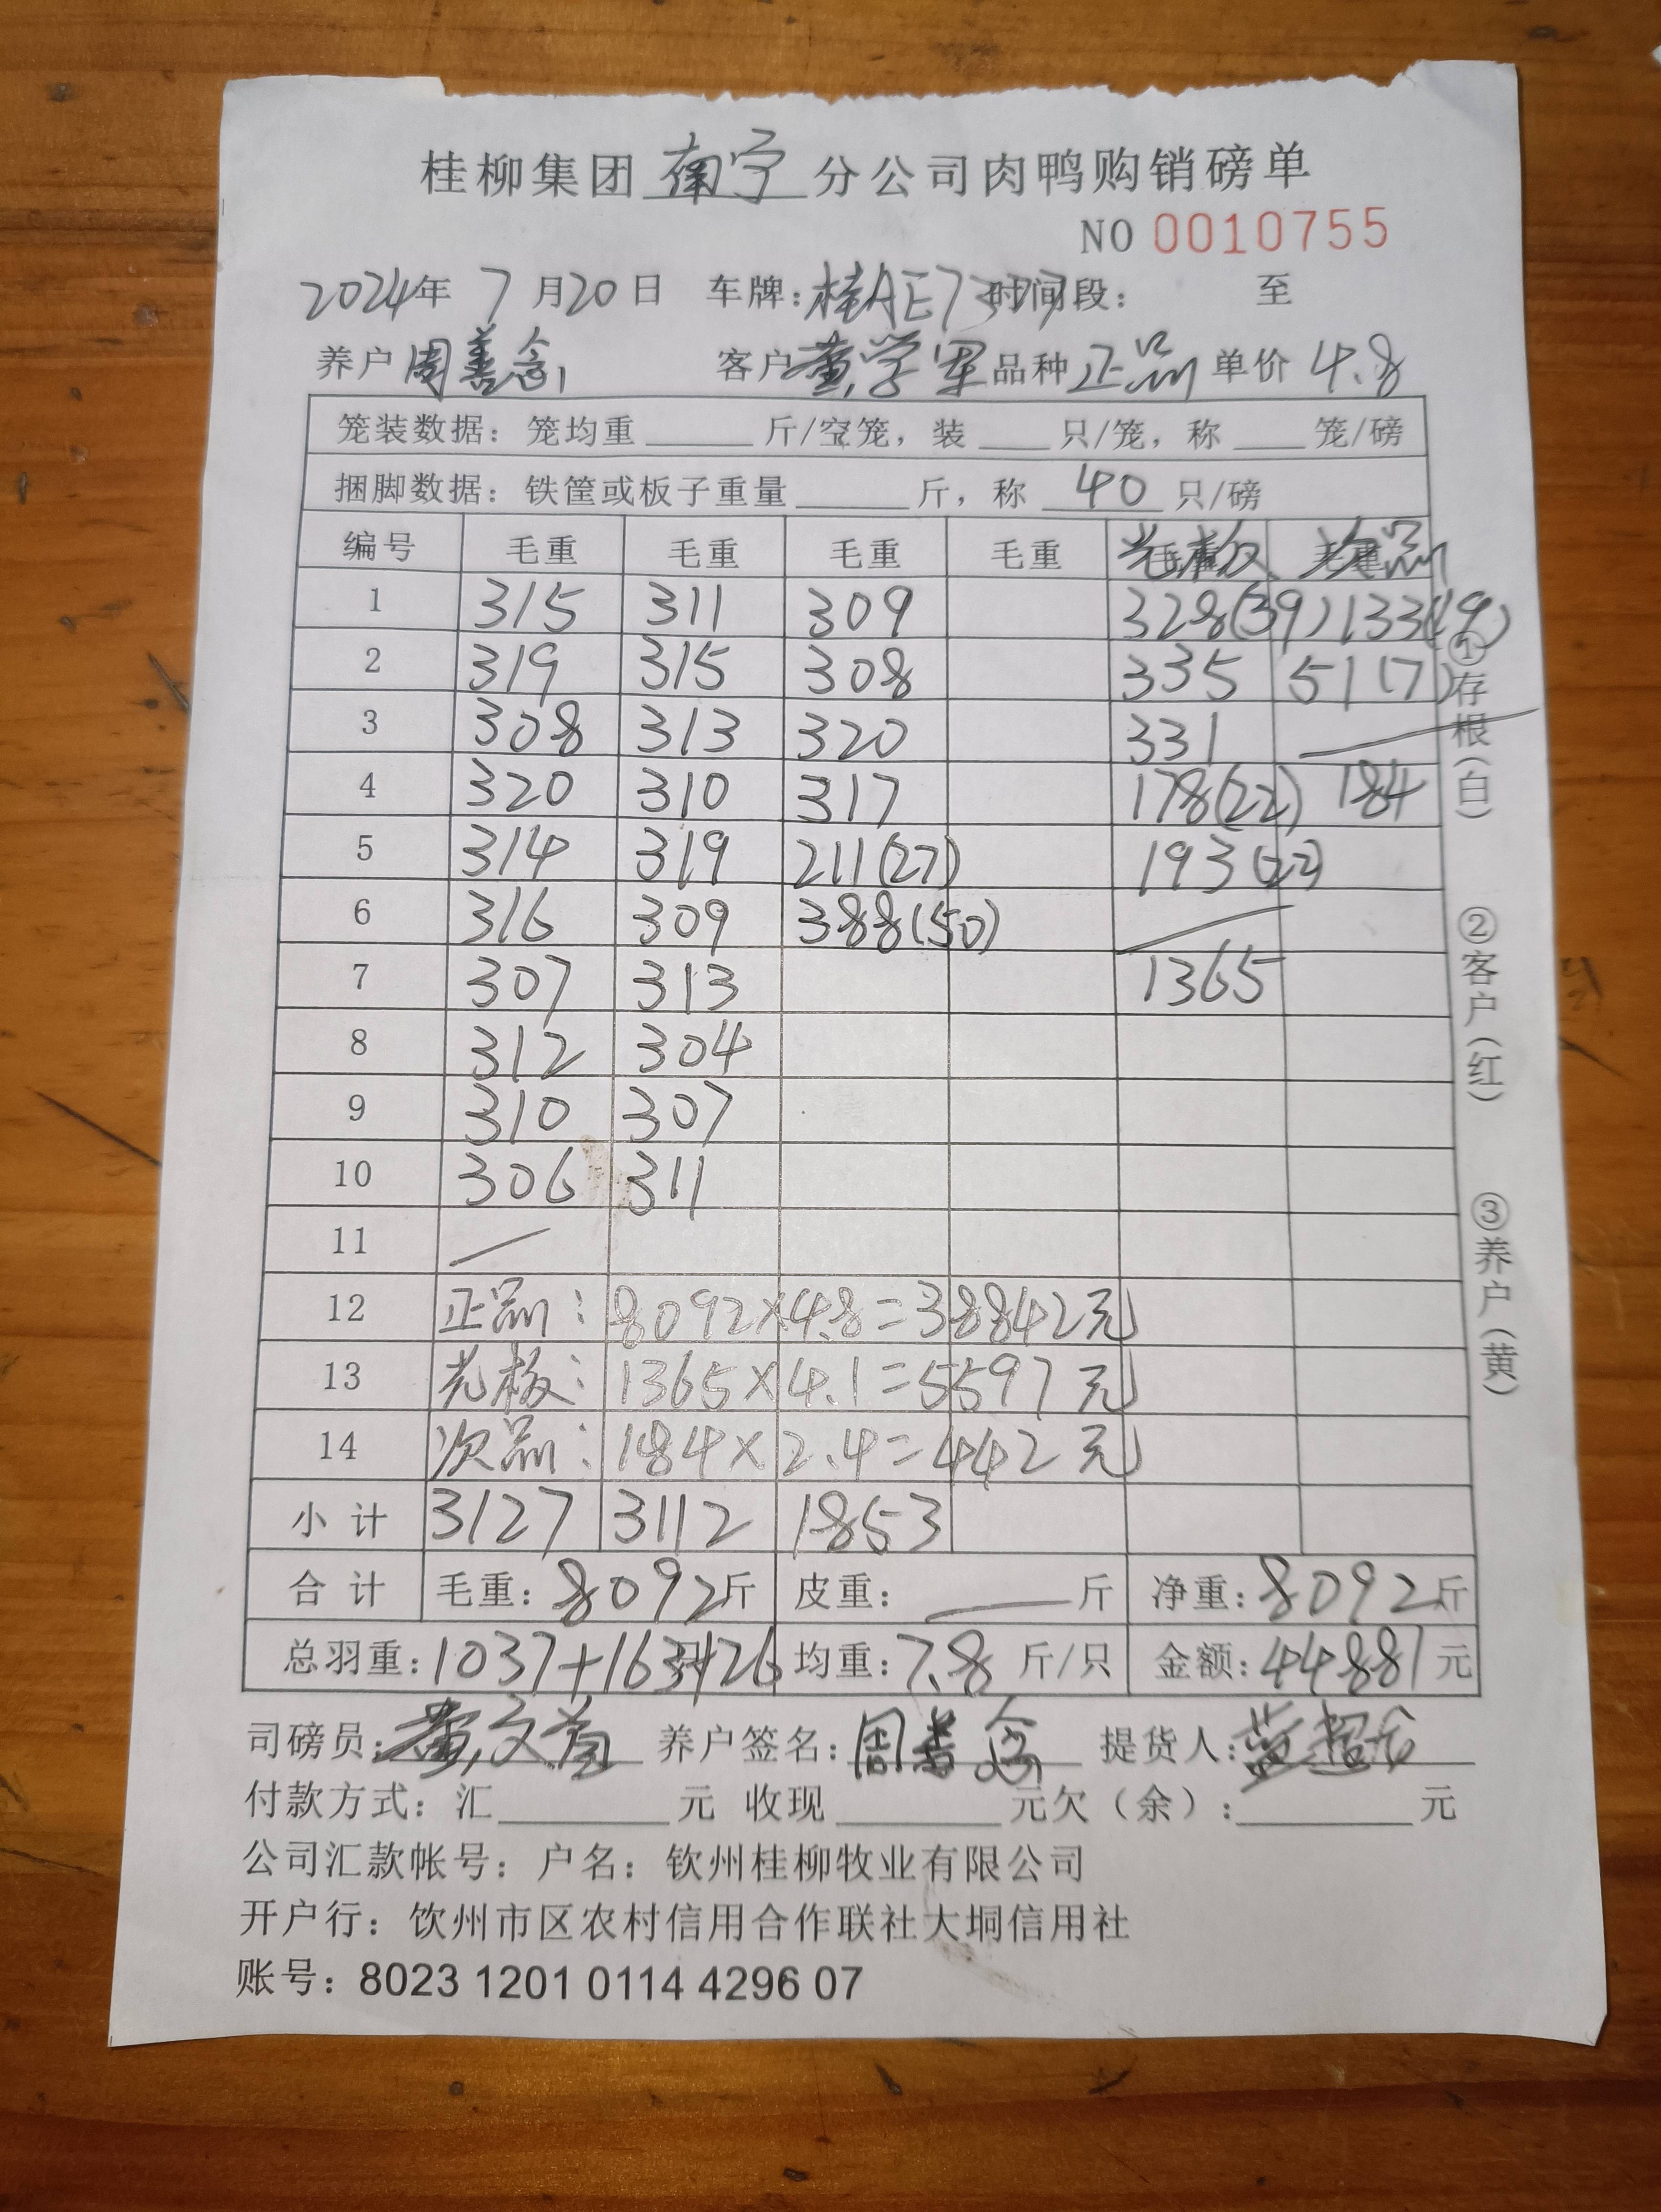 桂柳集团 南宁 分公司肉鸭购销磅单
NO 0010755
2024年 7 月20日 车牌: 时间段: 至
养户 周善念 客户 黄学军 品种 正品 单价 4.8
笼装数据: 笼均重 斤/空笼, 装 只/笼, 称 笼/磅
捆脚数据: 铁筐或板子重量 斤, 称 40 只/磅
编号 毛重 毛重 毛重 毛重 光板 次品
1 315 311 309 328(39) 133(19)
2 319 315 308 335 51(7)
3 308 313 320 331
4 320 310 317 178(22) 184
5 314 319 211(27) 193(22)
6 316 309 388(50)
7 307 313 1365
8 312 304
9 310 307
10 306 311
11
12 正品: 8092×4.8=38842元
13 光板: 1365×4.1=5597元
14 次品: 184×2.4=442元
小计 3127 3112 1853
合计 毛重: 8092斤 皮重: 斤 净重: 8092斤
总羽重: 1037+163+26 均重: 7.8 斤/只 金额: 44881元
司磅员: 养户签名: 周善念 提货人:
付款方式: 汇 元 收现 元欠(余): 元
公司汇款帐号: 户名: 钦州桂柳牧业有限公司
开户行: 钦州市区农村信用合作联社大垌信用社
账号: 8023 1201 0114 4296 07
①存根(白) ②客户(红) ③养户(黄)